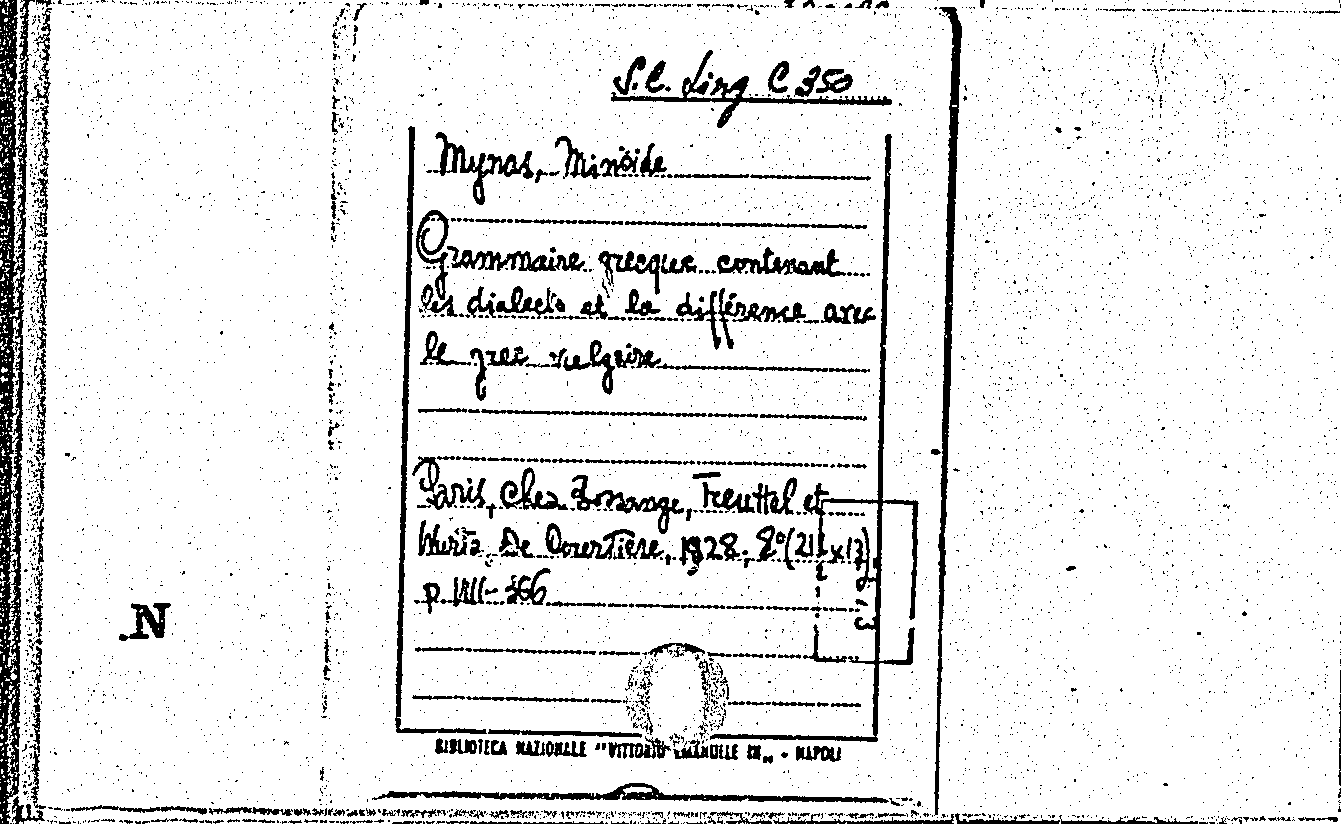 S.C. Ling C 350
Mynas, Minoïde
Grammaire grecque contenant
les dialects et la différence avec
le grec vulgaire
Paris, chez Bossange, Treuttel et
Wurtz De Courtière, 1828; 8° (21 x 13)
p. VIII-366
.N
BIBLIOTECA NAZIONALE "VITTORIO EMANUELE III„ - NAPOLI